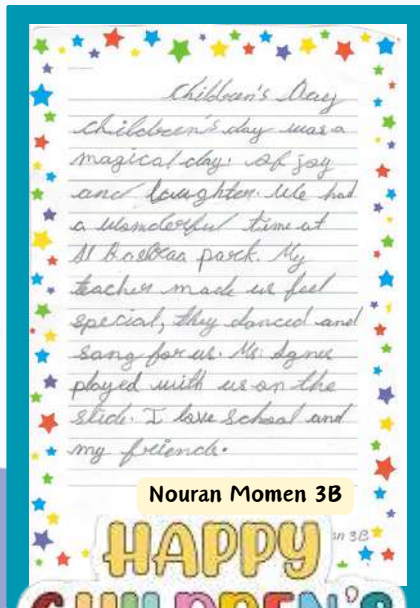 Children's Day
children's day was a
magical day. of joy
and laughter. We had
a wonderful time at
park. My
teacher made us feel
special, they danced and
sang for us. Ms. Agnes
played with us on the
slide. I love school and
my friends.
Nouran Momen 3B
n 3B
HAPPY
CHILDREN'S